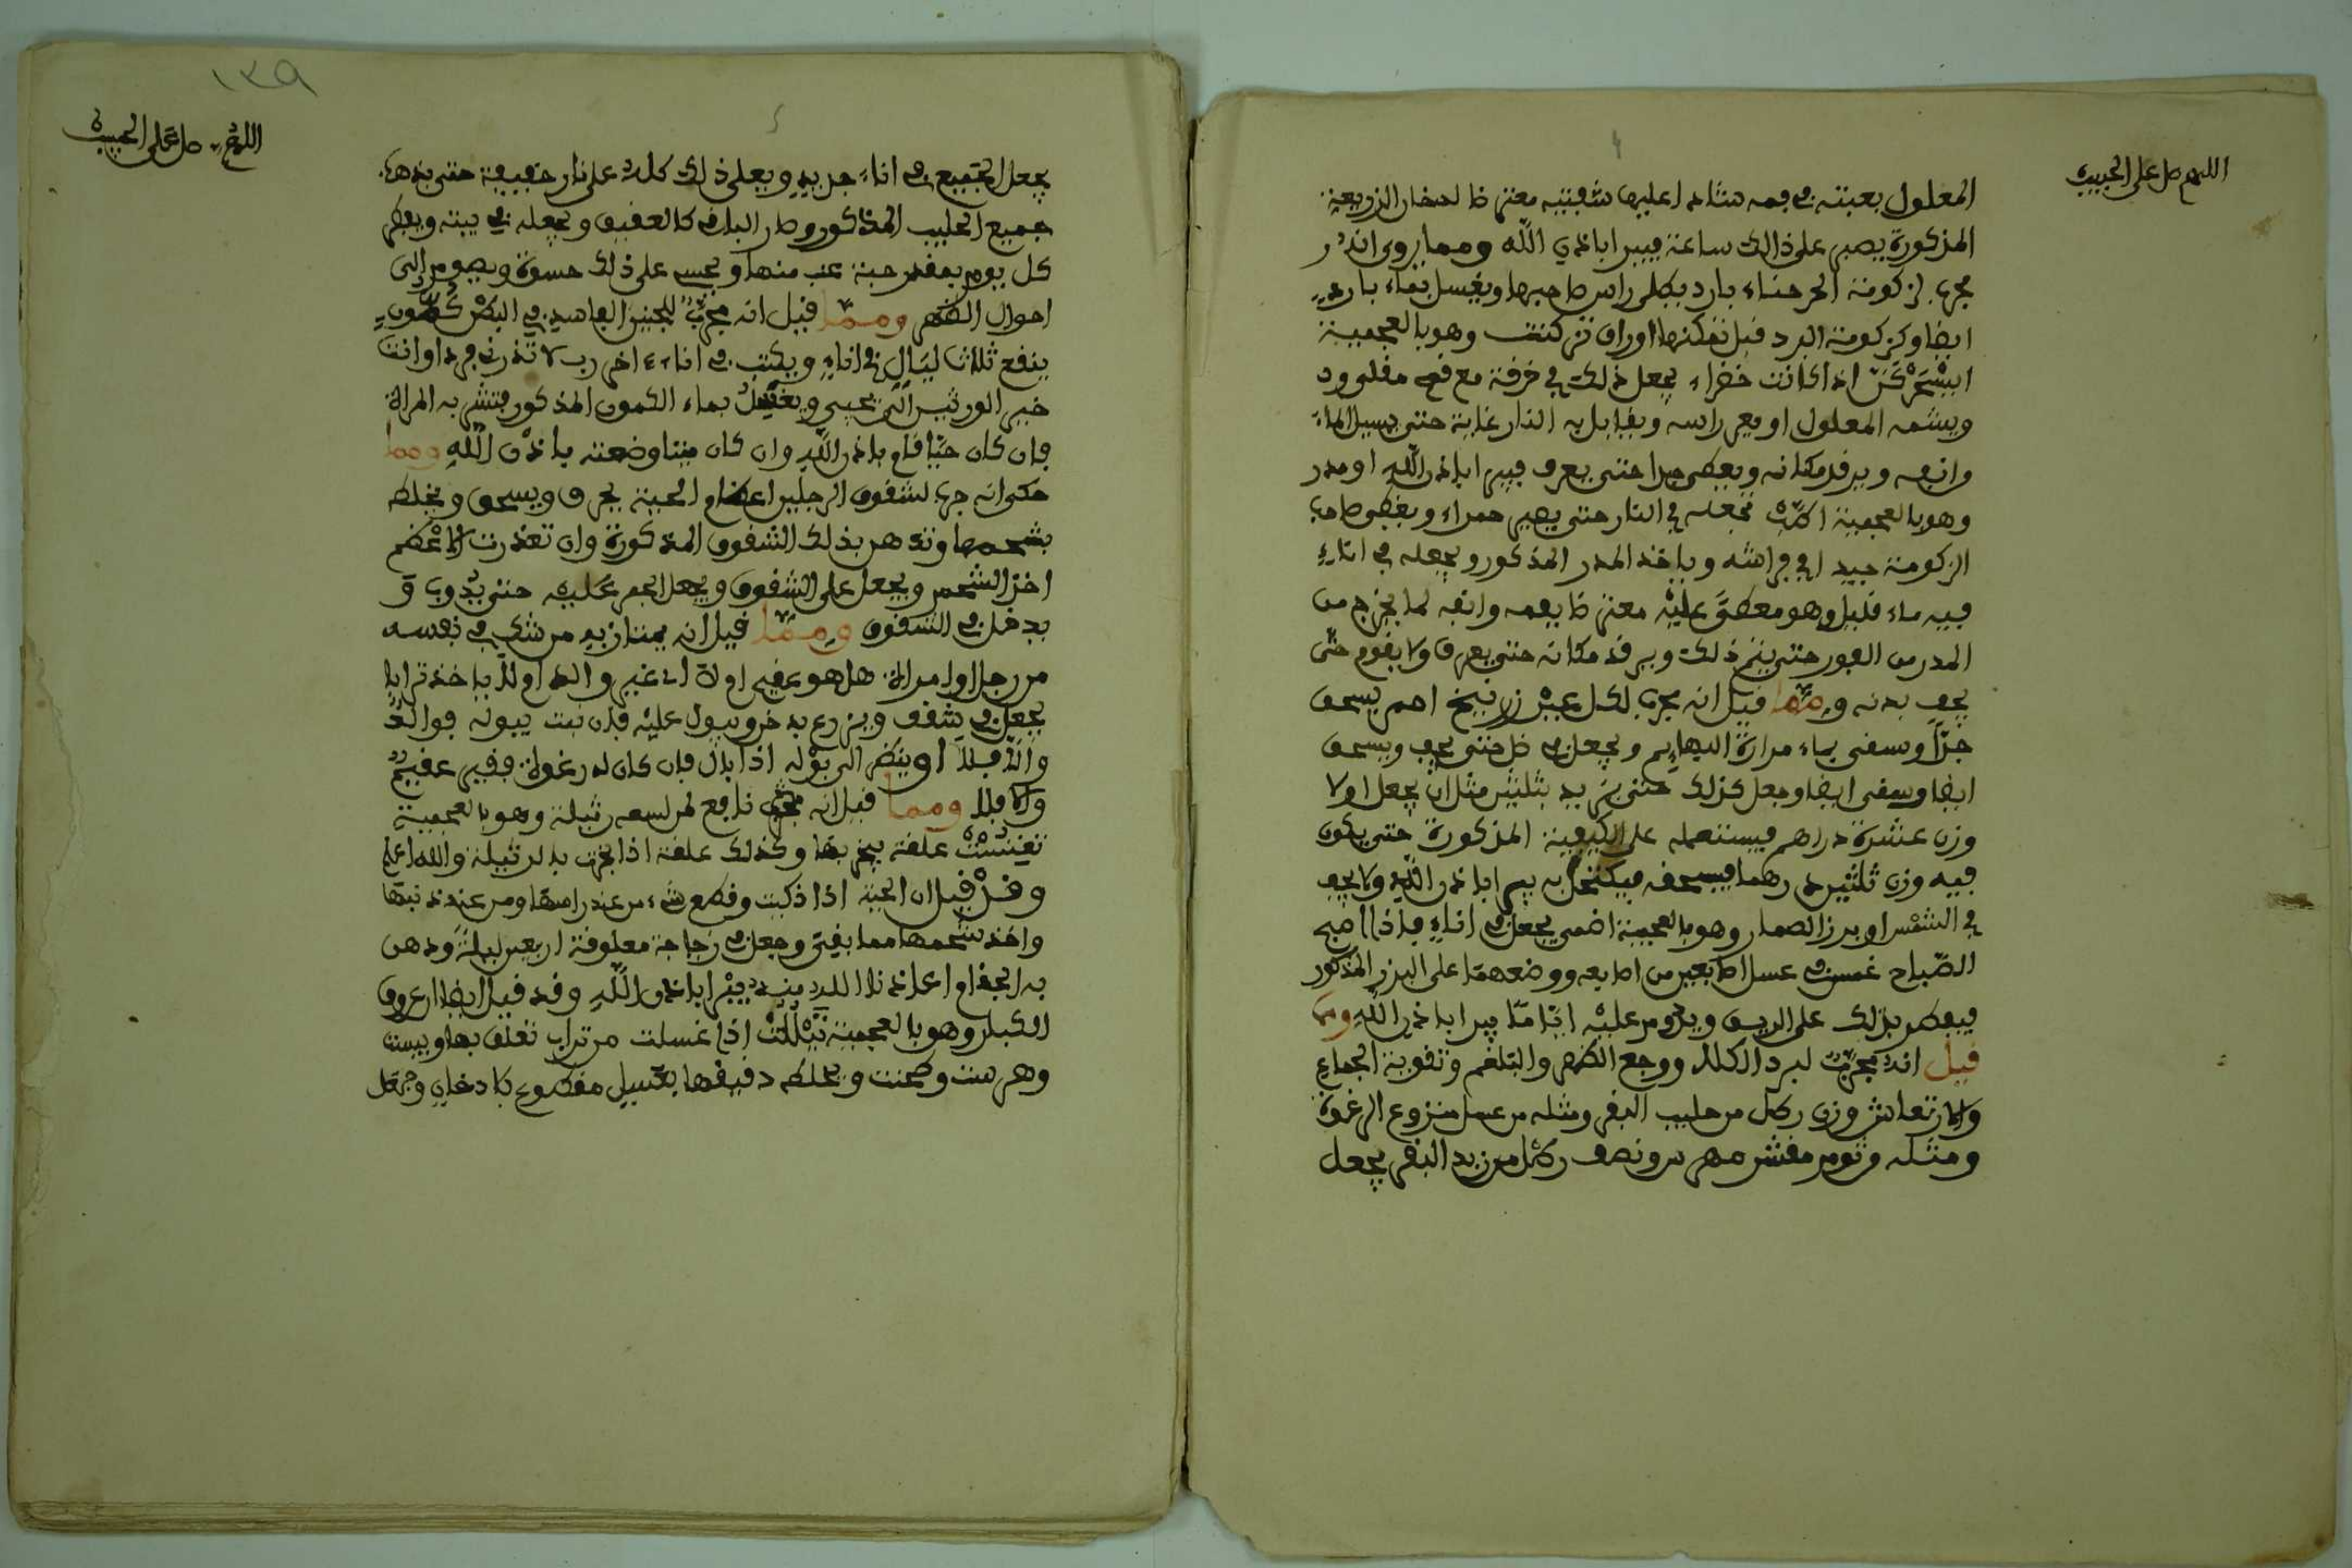 اللهم صل على الحبيب
المعلول بعينه في فمه شادا عليها شفتيه معتر ضا لدخان الزريعة
المذكورة يصبر على ذالك ساعة فيبرا باذن الله ومما روى انه
مجرب لزكومة الحر حناء بارد يطلى راس صاحبها ويغسل بماء بارد
ايضا وكزكومة البرد قبل تمكنها اوراق تركنت وهو بالعجمية
اذا كانت خضراء يجعل ذلك في خرفة مع فحم مقلوود
ويشمه المعلول او يعم راسه ويقابل به النار غاية حتى يسيل الماء
وانفه ويرفد مكانه ويغطى جدا حتى يعرف فيبرا باذن الله او مدر
وهو بالعجمية تجعله في النار حتى يصير حمراء ويغطى صاحب
الزكومة جيدا في فراشه وياخذ المدر المذكور ويجعله في اناء
فيه ماء قليل وهو مغطى عليه معتر ضا بفمه وانفه لما يخرج من
المدر من الفور حتى يتم ذلك ويرفد مكانه حتى يعرق ولا يقوم حتى
يجف بدنه ومما قيل انه مجرب لكل عين زرنيخ احمر يسحق
جدا وسقى بماء مرارة البهايم ويجعل في ظل حتى يجف ويسحق
ايضا وسقى ايضا وجعل كذلك حتى يزيد بثلثين مثل ان يجعل اولا
وزن عشرة دراهم فيستعمله على الكيفية المذكورة حتى يكون
فيه وزن ثلثين درهما فيسحقه فيكتحل به يبرا باذن الله ولا يجف
في الشمس او برز الصمار وهو بالعجمية يجعل في اناء فاذا اصبح
الصباح غمس في عسل اصبعين من اصابعه ووضعهما على البزر المذكور
فيفطر بذلك على الريق ويدوم عليه اياما يبرا باذن الله ومما
قيل انه مجرب لبرد الكلا ووجع الظهر والبلغم وتقوية الجماع
والارتعاش وزن رطل من حليب البقر ومثله من عسل منزوع الرغوة
ومثله وثوم مقشر مهرس ونصف رطل من زبد البقر يجعل
١٣٩
اللهم صل على الحبيب
يجعل الجميع في اناء جديد ويغلى ذلك كله على نار خفيفة حتى يذهب
جميع الحليب المذكور وصار الباقى كالعقيق ويجعله في بيته ويفطر
كل يوم بمقدر حبة عنب منها ويحسى على ذلك حسوة ويصوم الى
احوال الظهر ومما قيل انه مجرب للجنين الفاسد في البطن كمون
ينقع ثلاث ليال في اناء ويكتب في اناء اخر رب لا تذرنى فردا وانت
خير الورثين الى يحيى ويغسل بماء الكمون المذكور فتشربه المراة
فان كان حيا قام باذن الله وان كان ميتا وضعته باذن الله ومما
حكى انه جرب لشقوق الرجلين اعظام الحية يحرق ويسحق ويخلط
بشحمها وتدهن بذلك الشقوق المذكورة وان تعذرت الاعظم
اخذ الشحم ويجعل على الشقوق ويجعل الجمر عليه حتى يذوب و
يدخل في الشقوق ومما قيل انه يمتاز به من شك في نفسه
من رجل او امراة هل هو عقيم او لا غير والد او لا ياخذ ترابا
يجعل في شقف ويزرع به ذرو يبول عليه فان نبت ببوله فوالد
والا فلا او ينظر الى بوله اذا بال فان كان له رغوة فغير عقيم
والا فلا ومما قيل انه مجرب نافع لمن لسعه رثيلة وهو بالعجمية
علقة يبخر بها وكذلك علقة اذا بخرت بالرثيلة والله اعلم
وقد قيل ان الحية اذا ذكيت وقطع شىء من عند راسها ومن عند ذنبها
واخذ شحمها مما بقى وجعل في زجاجة معلوقة اربعين ليلة ودهن
به الجذام اعاذنا الله منه يبرا باذن الله وقد قيل ايضا ان عروق
الكبار وهو بالعجمية اذا غسلت من تراب تعلق بها ويبست
وهرست وطحنت ويخلط دقيقها بعسل مقطوع بادخان وجعل